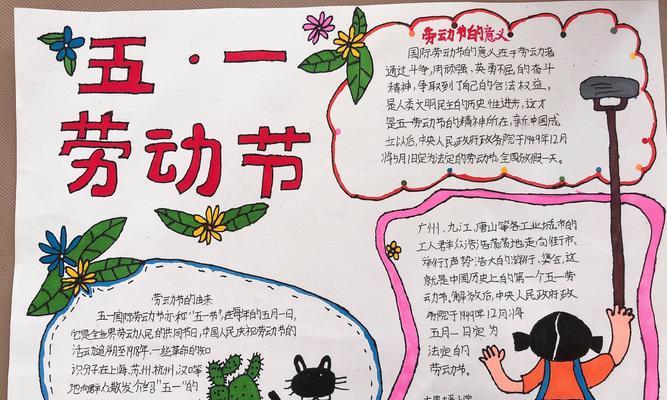 五·一
劳动节
劳动节的意义
国际劳动节的意义在于劳动者
通过斗争,用顽强、英勇不屈的奋斗
精神,争取到了自己的合法权益,
是人类文明民主的历史性进步,这才
是五一劳动节的精神所在,新中国成
立以后,中央人民政府政务院于1949年12月
将5月1日定为法定的劳动节,全国放假一天。
广州、九江、唐山等各工业城市的
工人群众浩浩荡荡地走向街市、
举行了声势浩大的游行、集会,这
就是中国历史上的第一个五一劳
动节。解放后,中央人民政府政
务院于1949年12月将
五月一日定为
法定的
劳动节。
劳动节的由来
五一国际劳动节亦称"五一节",在每年的五月一日,
它是全世界劳动人民的共同节日,中国人民庆祝劳动节的
活动追溯至1918年,一些革命的知
识分子在上海、苏州、杭州、汉口等
地向群众散发介绍"五一"的